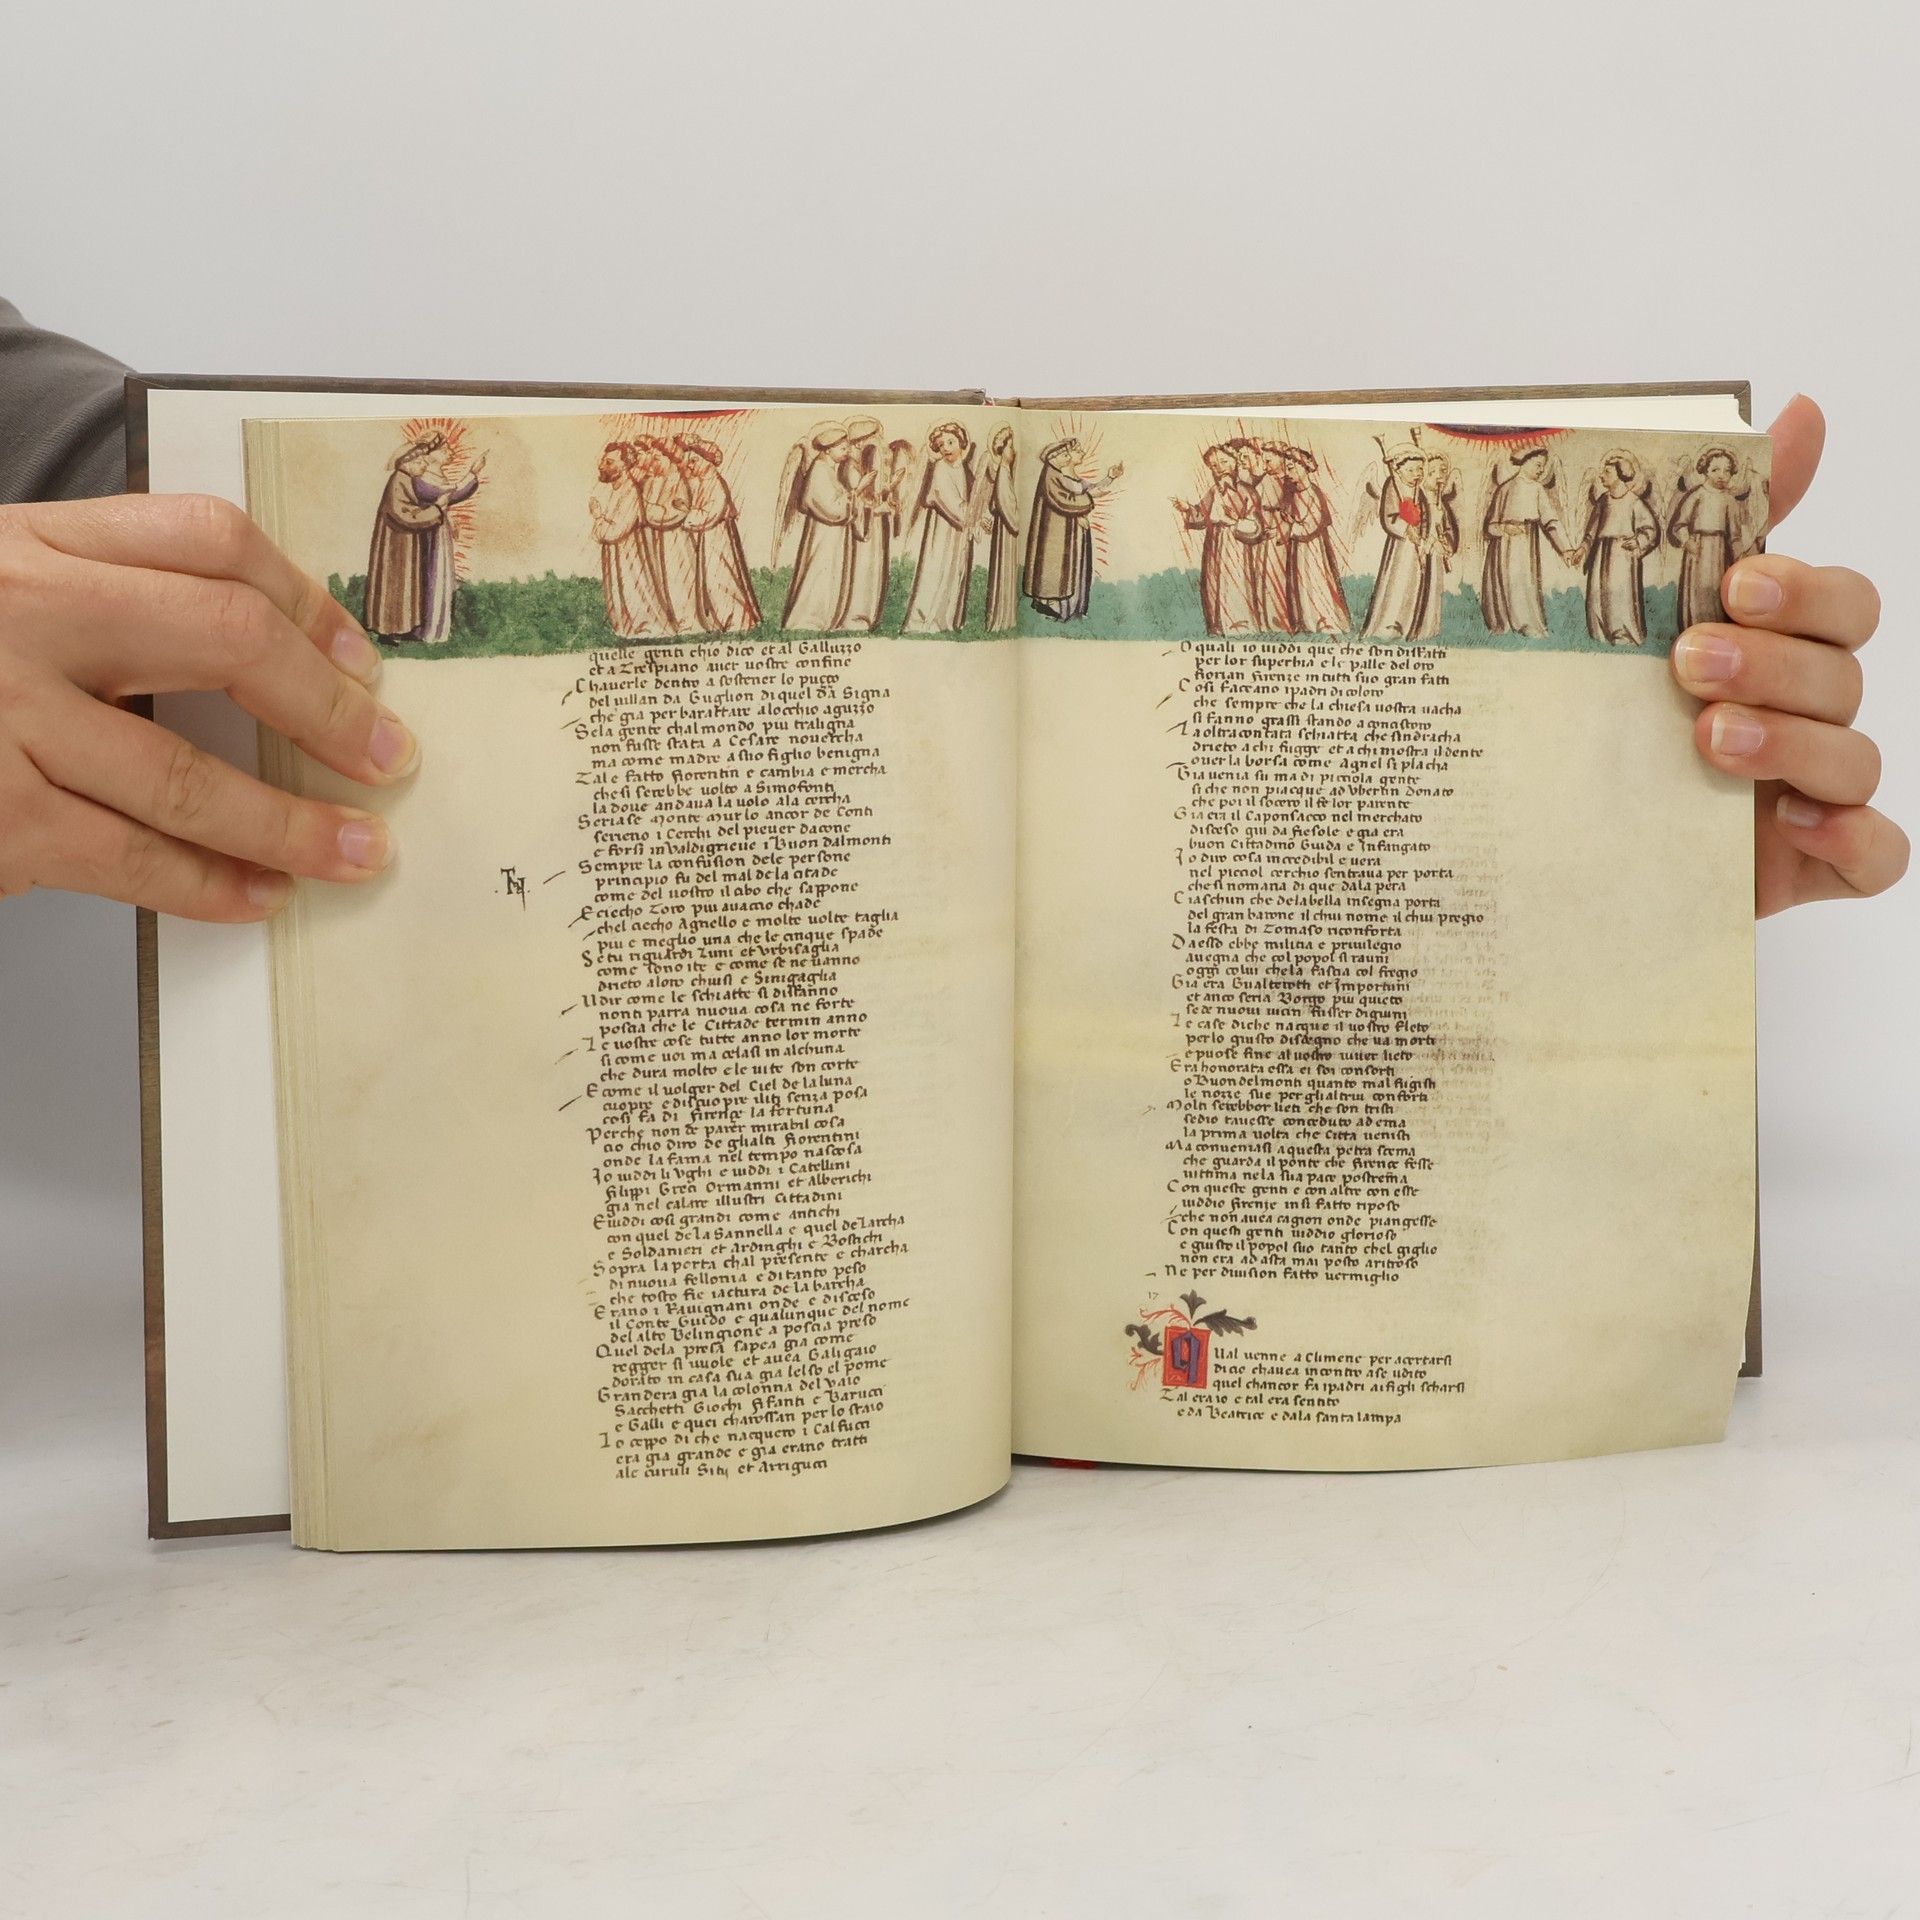 quelle genti chio dico et al Galluzzo
et a Trespiano auer uostre confine
Chauerle dentro a sostener lo puzzo
del uillan da Guglion di quel da Signa
che gia per barattare a locchio aguzzo
Sela gente chal mondo piu traligna
non fusse stata a Cesare nouercha
ma come madre a suo figlio benigna
Tal e fatto fiorentin e cambia e mercha
che si serebbe uolto a Simofonti
la doue andaua lauolo ala cercha
Seriase monte murlo ancor de Conti
serieno i Cerchi del pieuer dacone
e forsi in Valdigrieue i Buon dalmonti
Sempre la confusion dele persone
principio fu del mal de la citade
come del uostro il cibo che sappone
E ciecho Toro piu auaccio chade
chel ciecho Agnello e molte uolte taglia
piu e meglio una che le cinque spade
Se tu riguardi Luni et Vrbisaglia
come sono ite e come se ne uanno
drieto a loro chiusi e Sinigaglia
Udir come le schiatte si disfanno
non ti parra nuoua cosa ne forte
poscia che le Cittade termin anno
Le uostre cose tutte anno lor morte
si come uoi ma celasi in alchuna
che dura molto e le uite son corte
E come il uolger del Ciel de la luna
cuopre e discuopre iliti senza posa
cosi fa di firenze la fortuna
Perche non de parer mirabil cosa
cio chio diro de gli alti fiorentini
onde la fama nel tempo nascosa
Io uiddi li Vghi e uiddi i Catellini
filippi Greci Ormanni et Alberichi
gia nel calare illustri Cittadini
E uiddi cosi grandi come antichi
con quel de la Sannella e quel de Larcha
e Soldanieri et Ardinghi e Bostichi
Sopra la porta chal presente e charcha
di nuoua fellonia e di tanto peso
che tosto fie iactura de la barcha
Erano i Rauignani onde e disceso
il Conte Guido e qualunque del nome
del alto Belingione a poscia preso
Quel dela presa sapea gia come
regger si uuole et auea Galigaio
dorato in casa sua gia lelso el pome
Grandera gia la colonna del uaio
Sacchetti Giochi fifanti e Barucci
e Galli e quei charossan per lo staio
Lo ceppo di che nacquero i Calfucci
era gia grande e gia erano tratti
ale curuli Sitij et Arrigucci
O quali io uiddi que che son disfatti
per lor superbia e le palle del oro
fiorian firenze in tutti suo gran fatti
Cosi faceano i padri di coloro
che sempre che la chiesa uostra uacha
si fanno grassi stando a concistoro
La oltracontata schiatta che sindracha
drieto a chi fugge et a chi mostra il dente
ouer la borsa come Agnel si placha
Gia uenia su ma di piccola gente
si che non piacque ad Vbertin donato
che poi il socero il fe lor parente
Gia era il Caponsacco nel merchato
disceso giu da fiesole e gia era
buon Cittadino Guida e Infangato
Io diro cosa incredibil e uera
nel picciol cerchio sentraua per porta
che si nomana di que dala pera
Ciaschun che dela bella insegna porta
del gran barone il chui nome il chui pregio
la festa di Tomaso riconforta
Da esso ebbe militia e priuilegio
auegna che col popol si rauni
oggi colui che la fascia col fregio
Gia era Gualterotti et Importuni
et anco seria Borgo piu quieto
se de nuoui uicin fusser digiuni
Le case di che nacque il uostro fleto
per lo giusto disdegno che ua morti
e puose fine al uostro uiuer lieto
Era honorata essa ei soi consorti
o Buondelmonti quanto mal fugisti
le nozze sue per gli altrui conforti
Molti serebbor lieti che son tristi
sedio tauesse conceduto ad ema
la prima uolta che Citta uenisti
Ma conueniasi a questa petra scema
che guarda il ponte che firenze fesse
uittima nela sua pace postrema
Con queste genti e con altre con esse
uiddio firenze in si fatto riposo
che non auea cagion onde piangesse
Con questi genti uiddio glorioso
e giusto il popol suo tanto chel giglio
non era ad asta mai posto aritroso
Ne per diuision fatto uermiglio
17
Qual uenne a Climene per acertarsi
di cio chauea incontro a se udito
quel chancor fa i padri ai figli scharsi
Tal era io e tal era sentito
e da Beatrice e dala santa lampa